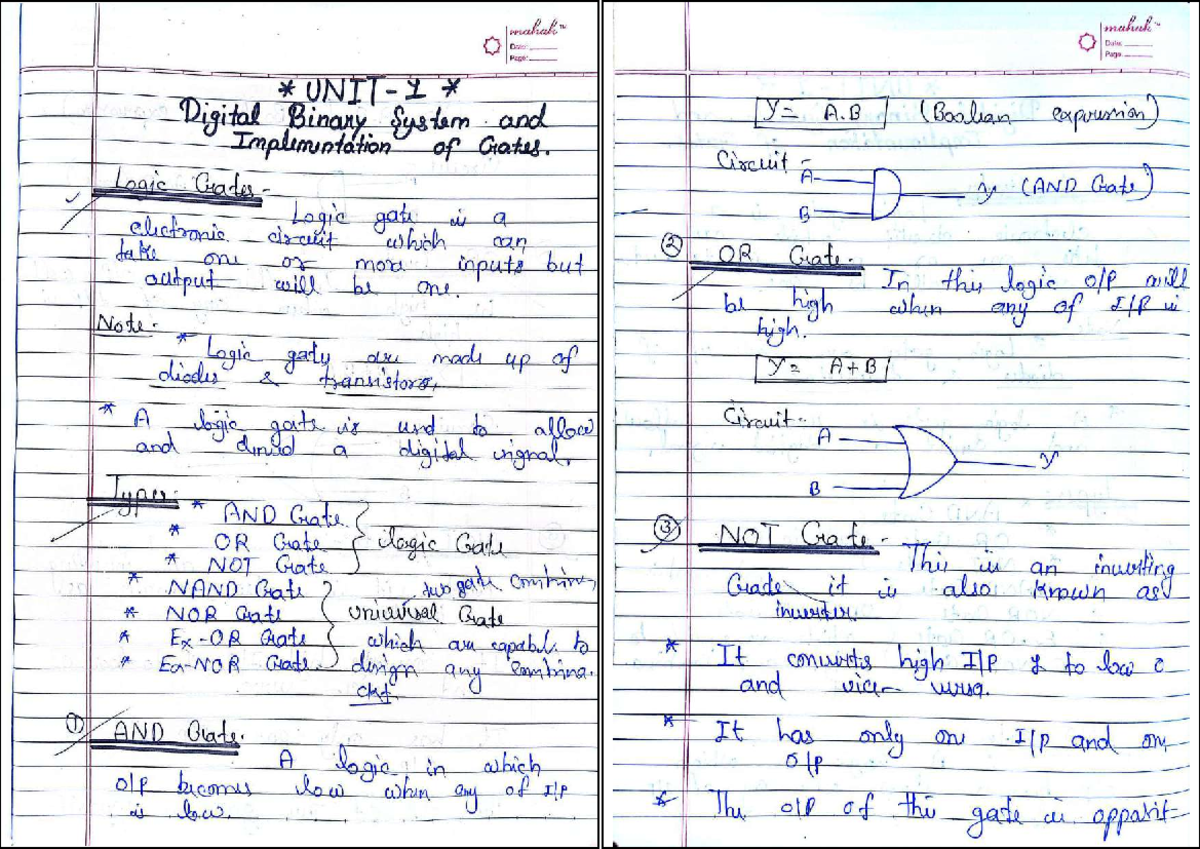 mahak™
Date:
Page:
* UNIT-1 *
Digital Binary System and
Implementation of Gates.
Logic Gates-
Logic gate is a
electronic circuit which can
take one or more inputs but
output will be one.
Note-
* Logic gates are made up of
diodes & transistors,
* A logic gate is used to allow
and a digital signal,
Types-
* AND Gate
* OR Gate
* NOT Gate
logic Gate
* NAND Gate
two gate combine,
* NOR Gate
universal Gate
* Ex-OR Gate
which are capable to
* Ex-NOR Gate
design any combina.
ckt.
① AND Gate.
A logic in which
O/P becomes low when any of I/P
is low.
mahak™
Date:
Page:
Y = A.B (Boolean expression)
Circuit -
A
B
Y (AND Gate)
② OR Gate-
In this logic O/P will
be high when any of I/P is
high.
Y = A+B
Circuit-
A
B
Y
③ NOT Gate-
This is an inverting
Gate it is also known as
inverter.
* It converts high I/P 1 to low 0
and vice- versa.
* It has only one I/P and one
O/P
* The O/P of this gate is opposit-